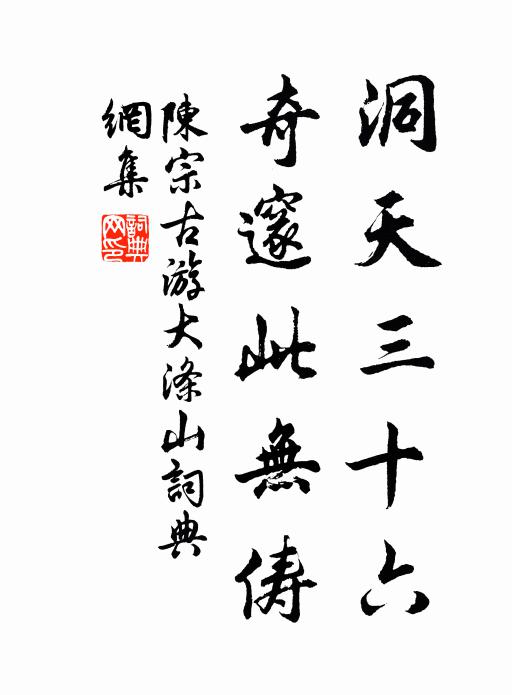 洞天三十六
奇邃此無儔
陳宗古游大滌山詞典
網集
詞典網印